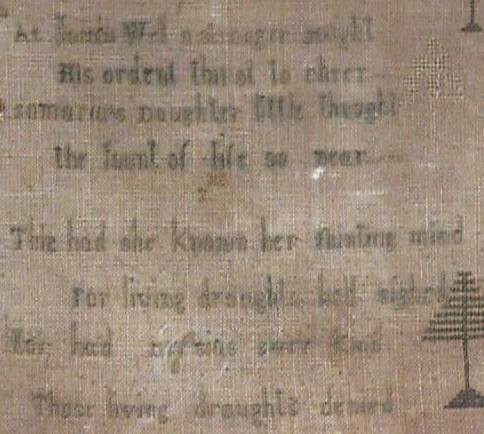 At Jacob's Well a stranger sought
His ordent thirst to cheer
samaria's Daughter little thought
the fount of life so near
This had she known her fainting mind
For living draughts had sighed
Nor had
Those living draughts denied